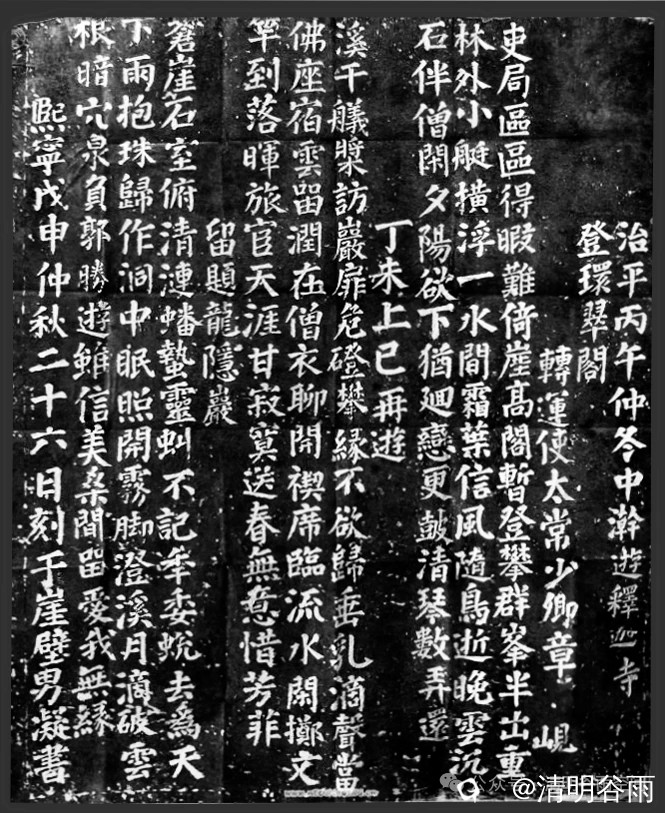 治平丙午仲冬中澣遊釋迦寺
登環翠閣
轉運使太常少卿章峴
吏局區區得暇難倚崖高閣暫登攀群峯半出重
林外小艇橫浮一水間霜葉信風隨鳥逝晚雲沉
石伴僧閑夕陽欲下猶迴戀更皷清琴數弄還
丁未上巳再遊
溪干艤槳訪巖扉危磴攀縁不欲歸垂乳滴聲當
佛座宿雲畱潤在僧衣聊開禊席臨流水閑擲文
竿到落暉旅官天涯甘寂寞送春無意惜芳菲
留題龍隱巖
蒼崖石室俯清漣蟠蟄靈虯不記秊委蛻去為天
下雨抱珠歸作洞中眠照開霧脚澄溪月滴破雲
根暗穴泉負郭勝遊雖信美桑間畱愛我無緣
熙寧戊申仲秋二十六日刻于崖壁男凝書
公众号
@清明谷雨